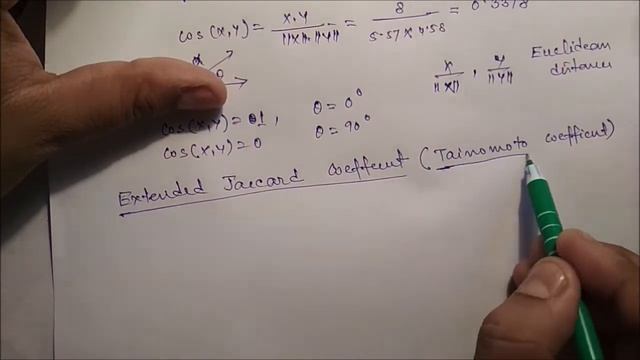 cos(x,y) = x.y / ||x||.||y|| = 8 / 5.57×4.58 = 0.3378
x
θ
x/||x|| , y/||y|| Euclidean distance
cos(x,y) = 01, θ = 0°
cos(x,y) = 0 θ = 90°
Extended Jaccard coeffecent (Tainomoto coefficent)